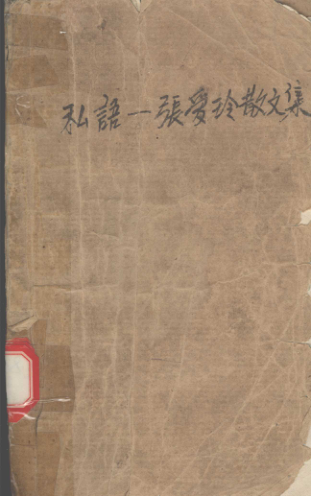 私語一張愛玲散文集